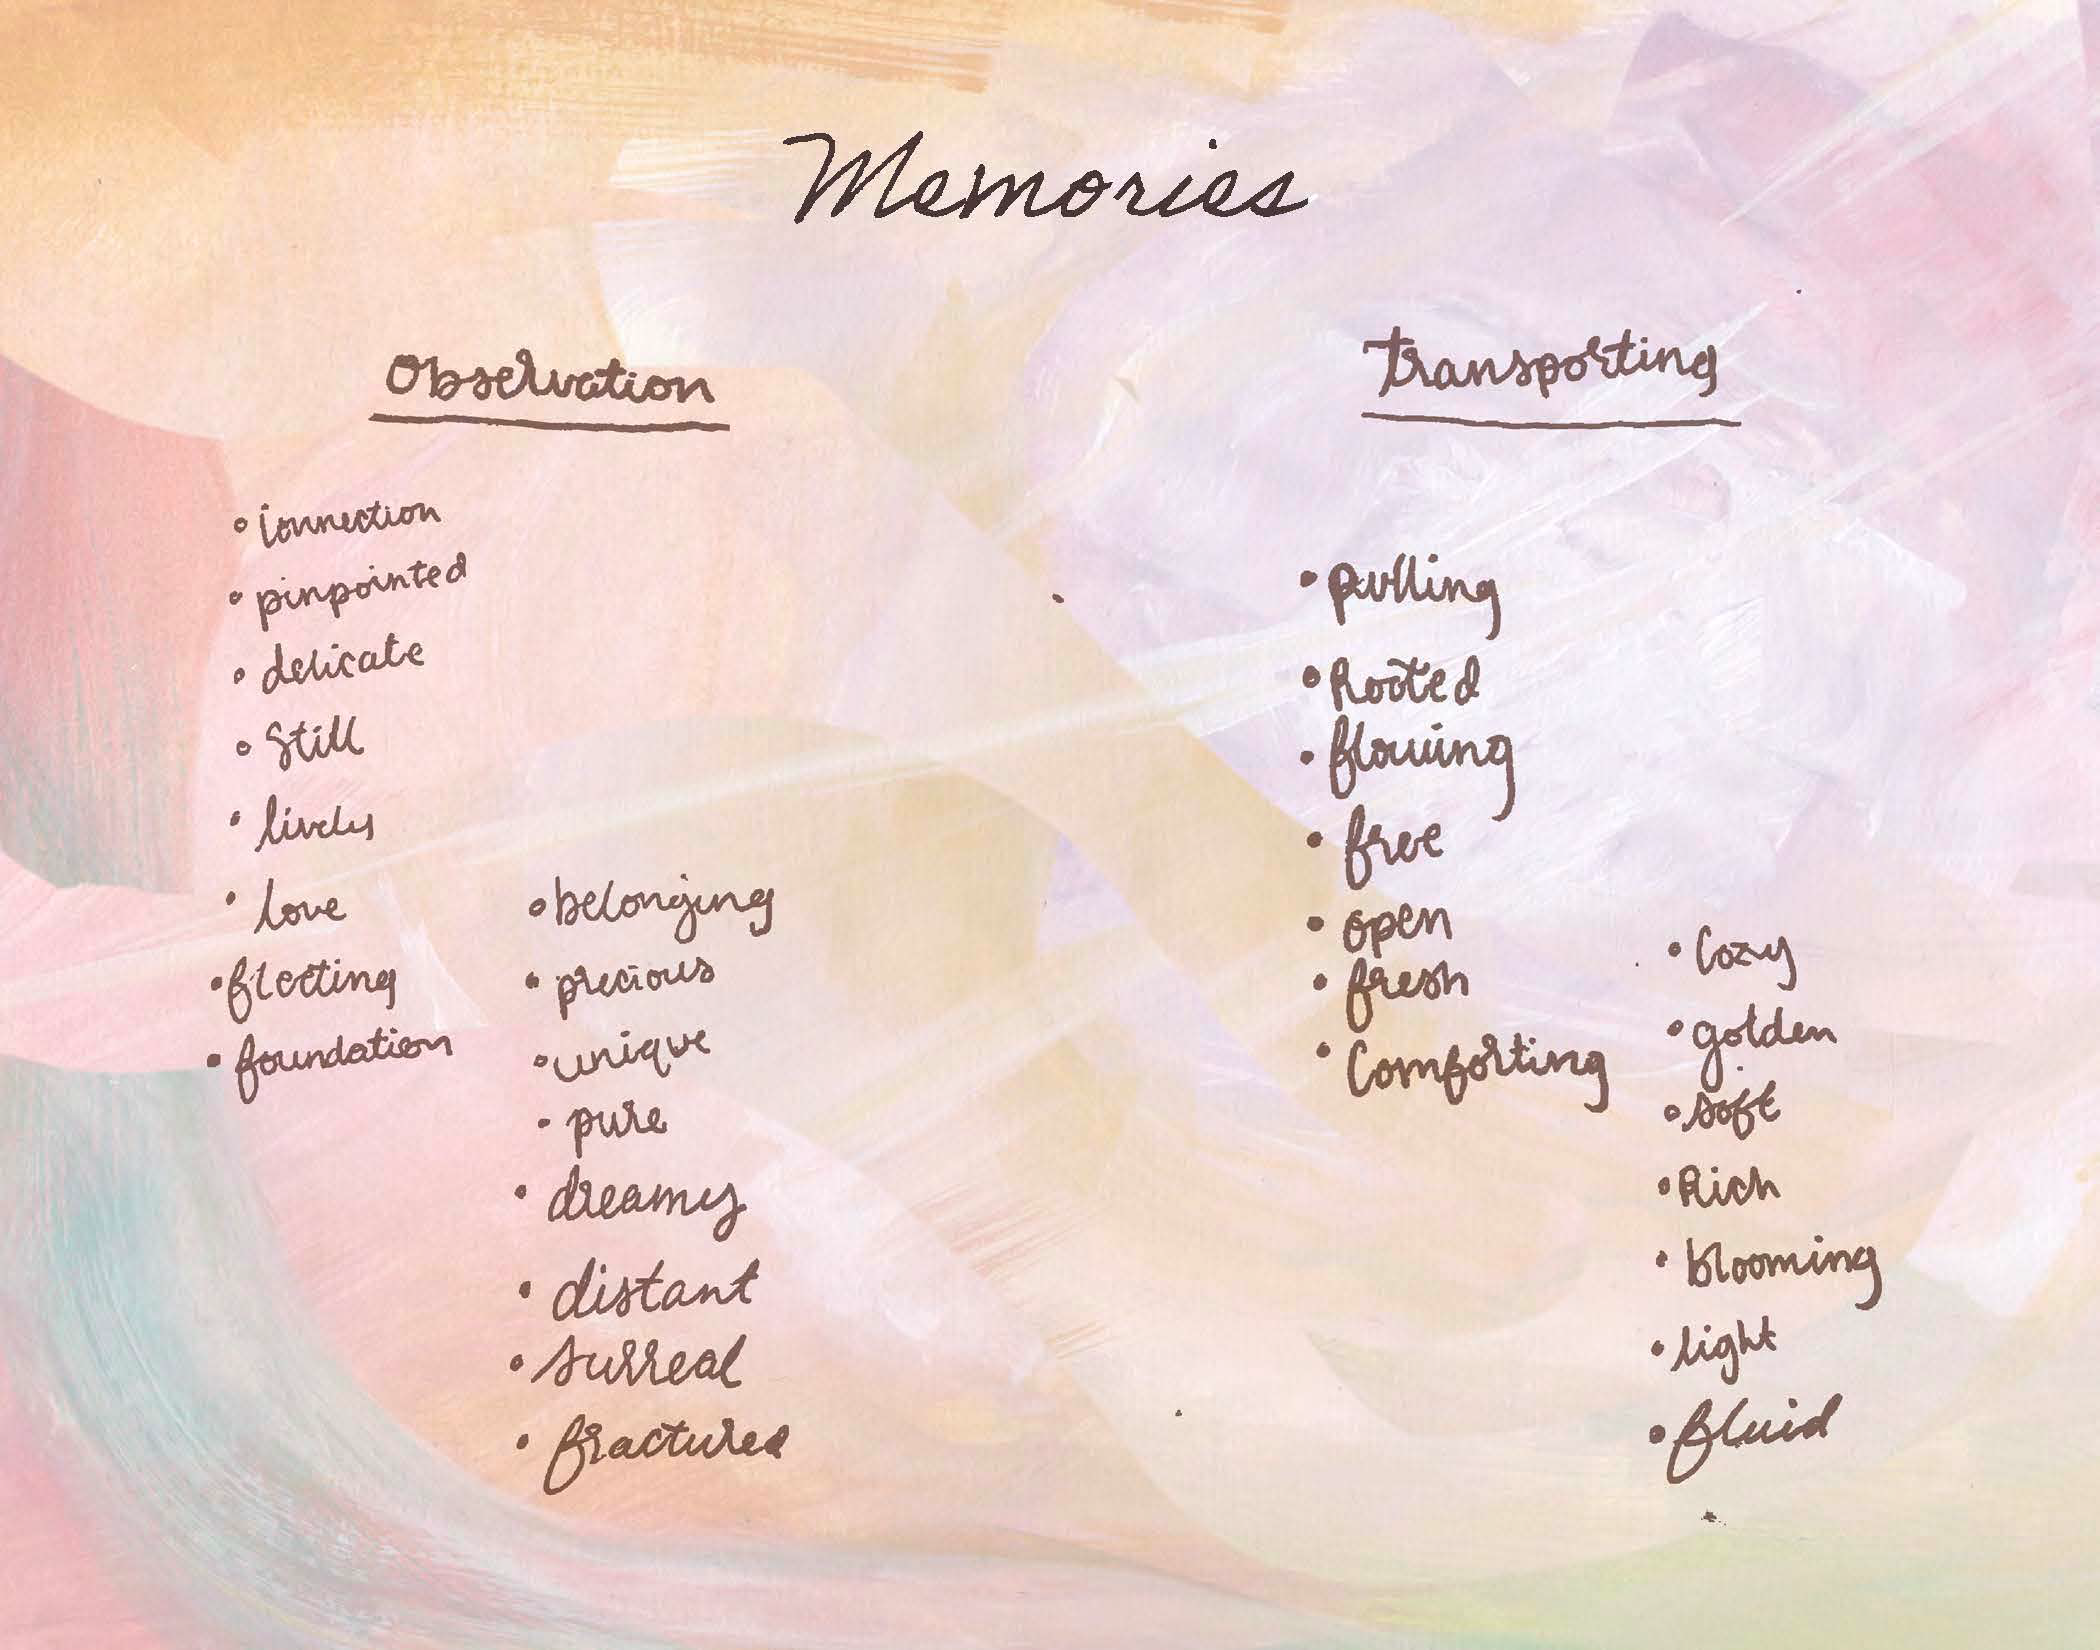 Memories
Observation
• connection
• pinpointed
• delicate
• still
• lively
• love
• fleeting
• foundation
• belonging
• precious
• unique
• pure
• dreamy
• distant
• surreal
• fractured
Transporting
• pulling
• Rooted
• flowing
• free
• open
• fresh
• Comforting
• Cozy
• golden
• soft
• Rich
• blooming
• light
• fluid